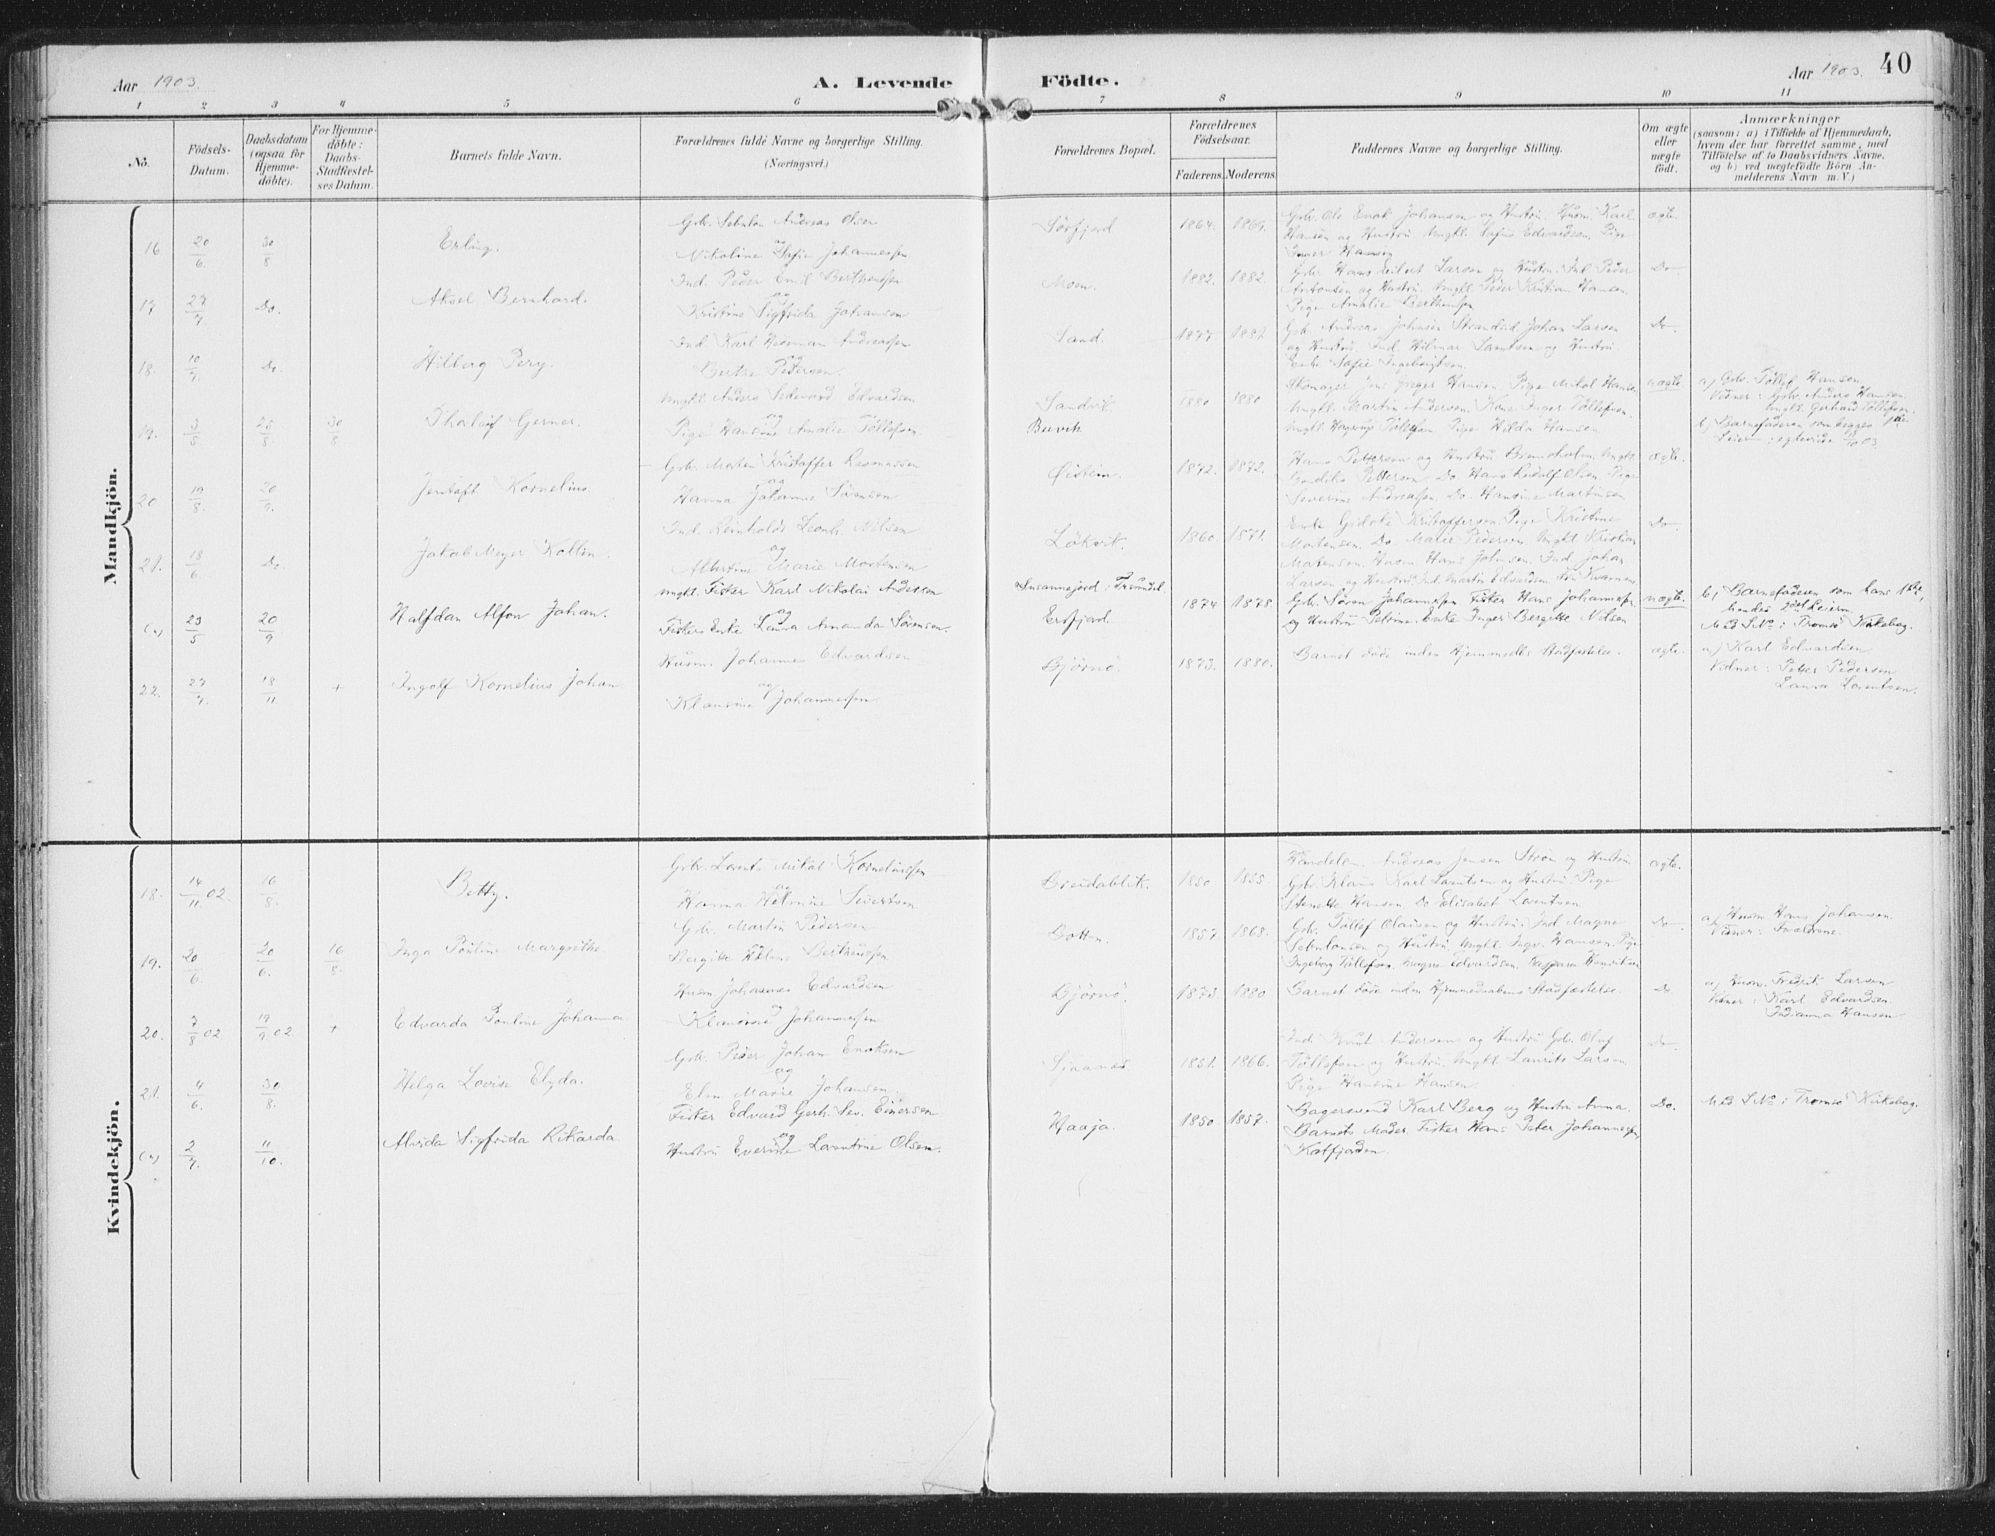 Aar 1903. A. Levende Födte. Aar 1903. 40
1 2 3 4 5 6 7 8 9 10 11
No.
Födsels-Datum.
Daabsdatum (ogsaa for Hjemme-döbte).
For Hjemme-döbte: Daabs-Stadfæstel-ses Datum.
Barnets fulde Navn.
Forældrenes fulde Navne og borgerlige Stilling.
(Næringsvei.)
Forældrenes Bopæl.
Forældrenes Födselsaar.
Faderens. Moderens
Faddernes Navne og borgerlige Stilling.
Om ægte eller uægte födt.
Anmærkninger
(saasom: a) i Tilfælde af Hjemmedaab,
hvem der har forrettet samme, med
Tilföielse af to Daabsvidners Navne,
og b) ved uægtefödte Börn An-
melderens Navn m. V.)
Mandkjön.
16 20/6 30/8 Erling.
Gbr. Sebulon Andreas Olsen
og
Nikoline Sofie Johannessen
Sørfjord 1864. 1864.
Gbr. Ole Enok Johansen og Hustru. Husm. Karl
Hansen og Hustru. Ungkl. Edvardsen. Pige
Inger Hansen
ægte.
17 27/7 Do. Aksel Bernhard.
Ind. Peder Emil Berthensen
og
Kristine Sigfrida Johansen
Moen. 1882. 1882.
Gbr. Hans Larsen og Hustru. Ind. Peder
Antonsen og Hustru. Ungkl. Peder Kristian Hansen
Pige Amalie Berthensen
Do
18. 10/7. Do. Hilberg Pery.
Ind. Karl Herman Andreassen
og
Bertha Pedersen.
Sand. 1877 1881
Gbr. Andreas Johnsen Johan Larsen
og Hustru. Ind. Hilmar Lorentsen og Hustru
Enke Sofie Ingebrigtsen.
Do.
19. 3/5 25/5 30/8 Tharleif Gerner.
Ungkl. Anders Edevard Edvardsen
og
Pige Hansine Amalie Tollefsen.
Sandvik.
Buvik
1880 1880
Skomager Jens Hansen. Pige Mikal Hansen
Ungkl. Martin Andersen. Kone Inger Tollefsen.
Ungkl. Hagerup Tollefsen Pige Hilda Hansen
uægte.
a) Gbr. Tollef Hansen
Vidner: Gbr. Anders Hansen
Ungkl. Gerhard Tollefsen.
b) Barnefaderen som begges 1ste
Leierm:
20 19/8. 20/9. Jentoft Kornelius.
Gbr. Morten Kristoffer Rasmussen
og
Hanna Johanne Sørensen
Øistein. 1872. 1872.
Hans Pettersen og Hustru Bremsholm. Ungkl.
Pettersen. Do. Hans Rudolf Olsen Pige
Severine Andreassen. Do. Hansine Martinsen
ægte.
21. 18/6 Do. Jakob Meyer Kollin.
Ind. Reinholdt Leonh. Nilsen
og
Albertine Marie Mortensen
Lökvik. 1860. 1871.
Enke Kristoffersen. Pige Kristine
Mortensen. Do Marie Pedersen. Ungkl. Kristian
Mortensen. Husm Hans Johnsen. Ind. Johan
Larsen og Hustru. Ind. Martin Edvardsen
Do.
(u) 23/5 20/9 Halfdan Alfon Johan.
Ungkl. Fisker Karl Nikolai Andersen
og
Fisker Enke Laura Amanda Sørensen.
Susannejord: Tromsdl.
Ersfjord.
1874 1878
Gbr. Søren Johannessen. Fisker Hans Johannessen
og Hustru Petrine. Enke Inger Bergitte Nilsen
uægte.
b) Barnefaderen som hans 1ste,
hendes 2det Leierm.
Med S.No i Tromsö Kirkebog.
22. 27/7. 18/11 + Ingolf Kornelius Johan
Husm. Johannes Edvardsen
og
Klausine Johannessen.
Björnö. 1873. 1880.
Barnet döde inden Hjemmed. Stadfæstelse.
ægte.
a) Karl Edvardsen
Vidner: Petter Pedersen
Laura Lorentsen.
Kvindekjön.
18. 14/11 02. 16/8. Betty.
Gbr. Lorents Mikal Korneliussen
og
Hanna Helmine Sivertsen
Breidablik. 1850 1855
Handelsm. Andreas Jensen Strøm og Hustru
Gbr. Klaus Karl Lorentsen og Hustru. Pige
Hansen. Do Elisabet Lorentsen.
ægte.
19. 20/6. 20/6. 16/8. Inga Pauline Margrethe
Gbr. Martin Pedersen
Bergitte Helene Berthensen
Botten. 1857 1868.
Gbr. Tollef Olausen og Hustru. Ind. Magne
Sebulonsen og Hustru. Ungkl. Ingv. Hansen. Pige
Ingeborg Tollefsen. Edvardsen.
Do
a) Husm Hans Johansen.
Vidner: Forældrene.
20. 7/8 02 19/9. 02 + Edvarda Pauline Johanna
Husm Johannes Edvardsen
og
Klausine Johannessen
Björnö. 1873 1880
Barnet döde inden Hjemmedaabens Stadfæstelse.
Do
a) Husm. Fredrik Larsen
Vidner: Karl Edvardsen.
Indianna Hansen.
21. 4/6. 30/8. Helga Lovise Elyda.
Gbr. Peder Johan Enoksen
og
Elen Marie Johansen.
1851. 1866.
Ind. Knut Andersens og Hustru. Gbr. Oluf
Tollefsen og Hustru. Ungkl. Laurits Larsen
Pige Hansine Hansen.
Do.
(u) 2/7. 11/10. Alvida Sigfrida Rikarda
Fisker Edvard Gerh. Sev. Einersen
og
Hustru Everine Laurentine Olsen.
Haaja. 1850. 1857.
Bagersvend Karl Berg og Hustru Anna.
Barnets Moder. Fisker Hans Peter Johannessen
Katfjorden.
Do.
Med S.No i Tromsö Kirkebog.